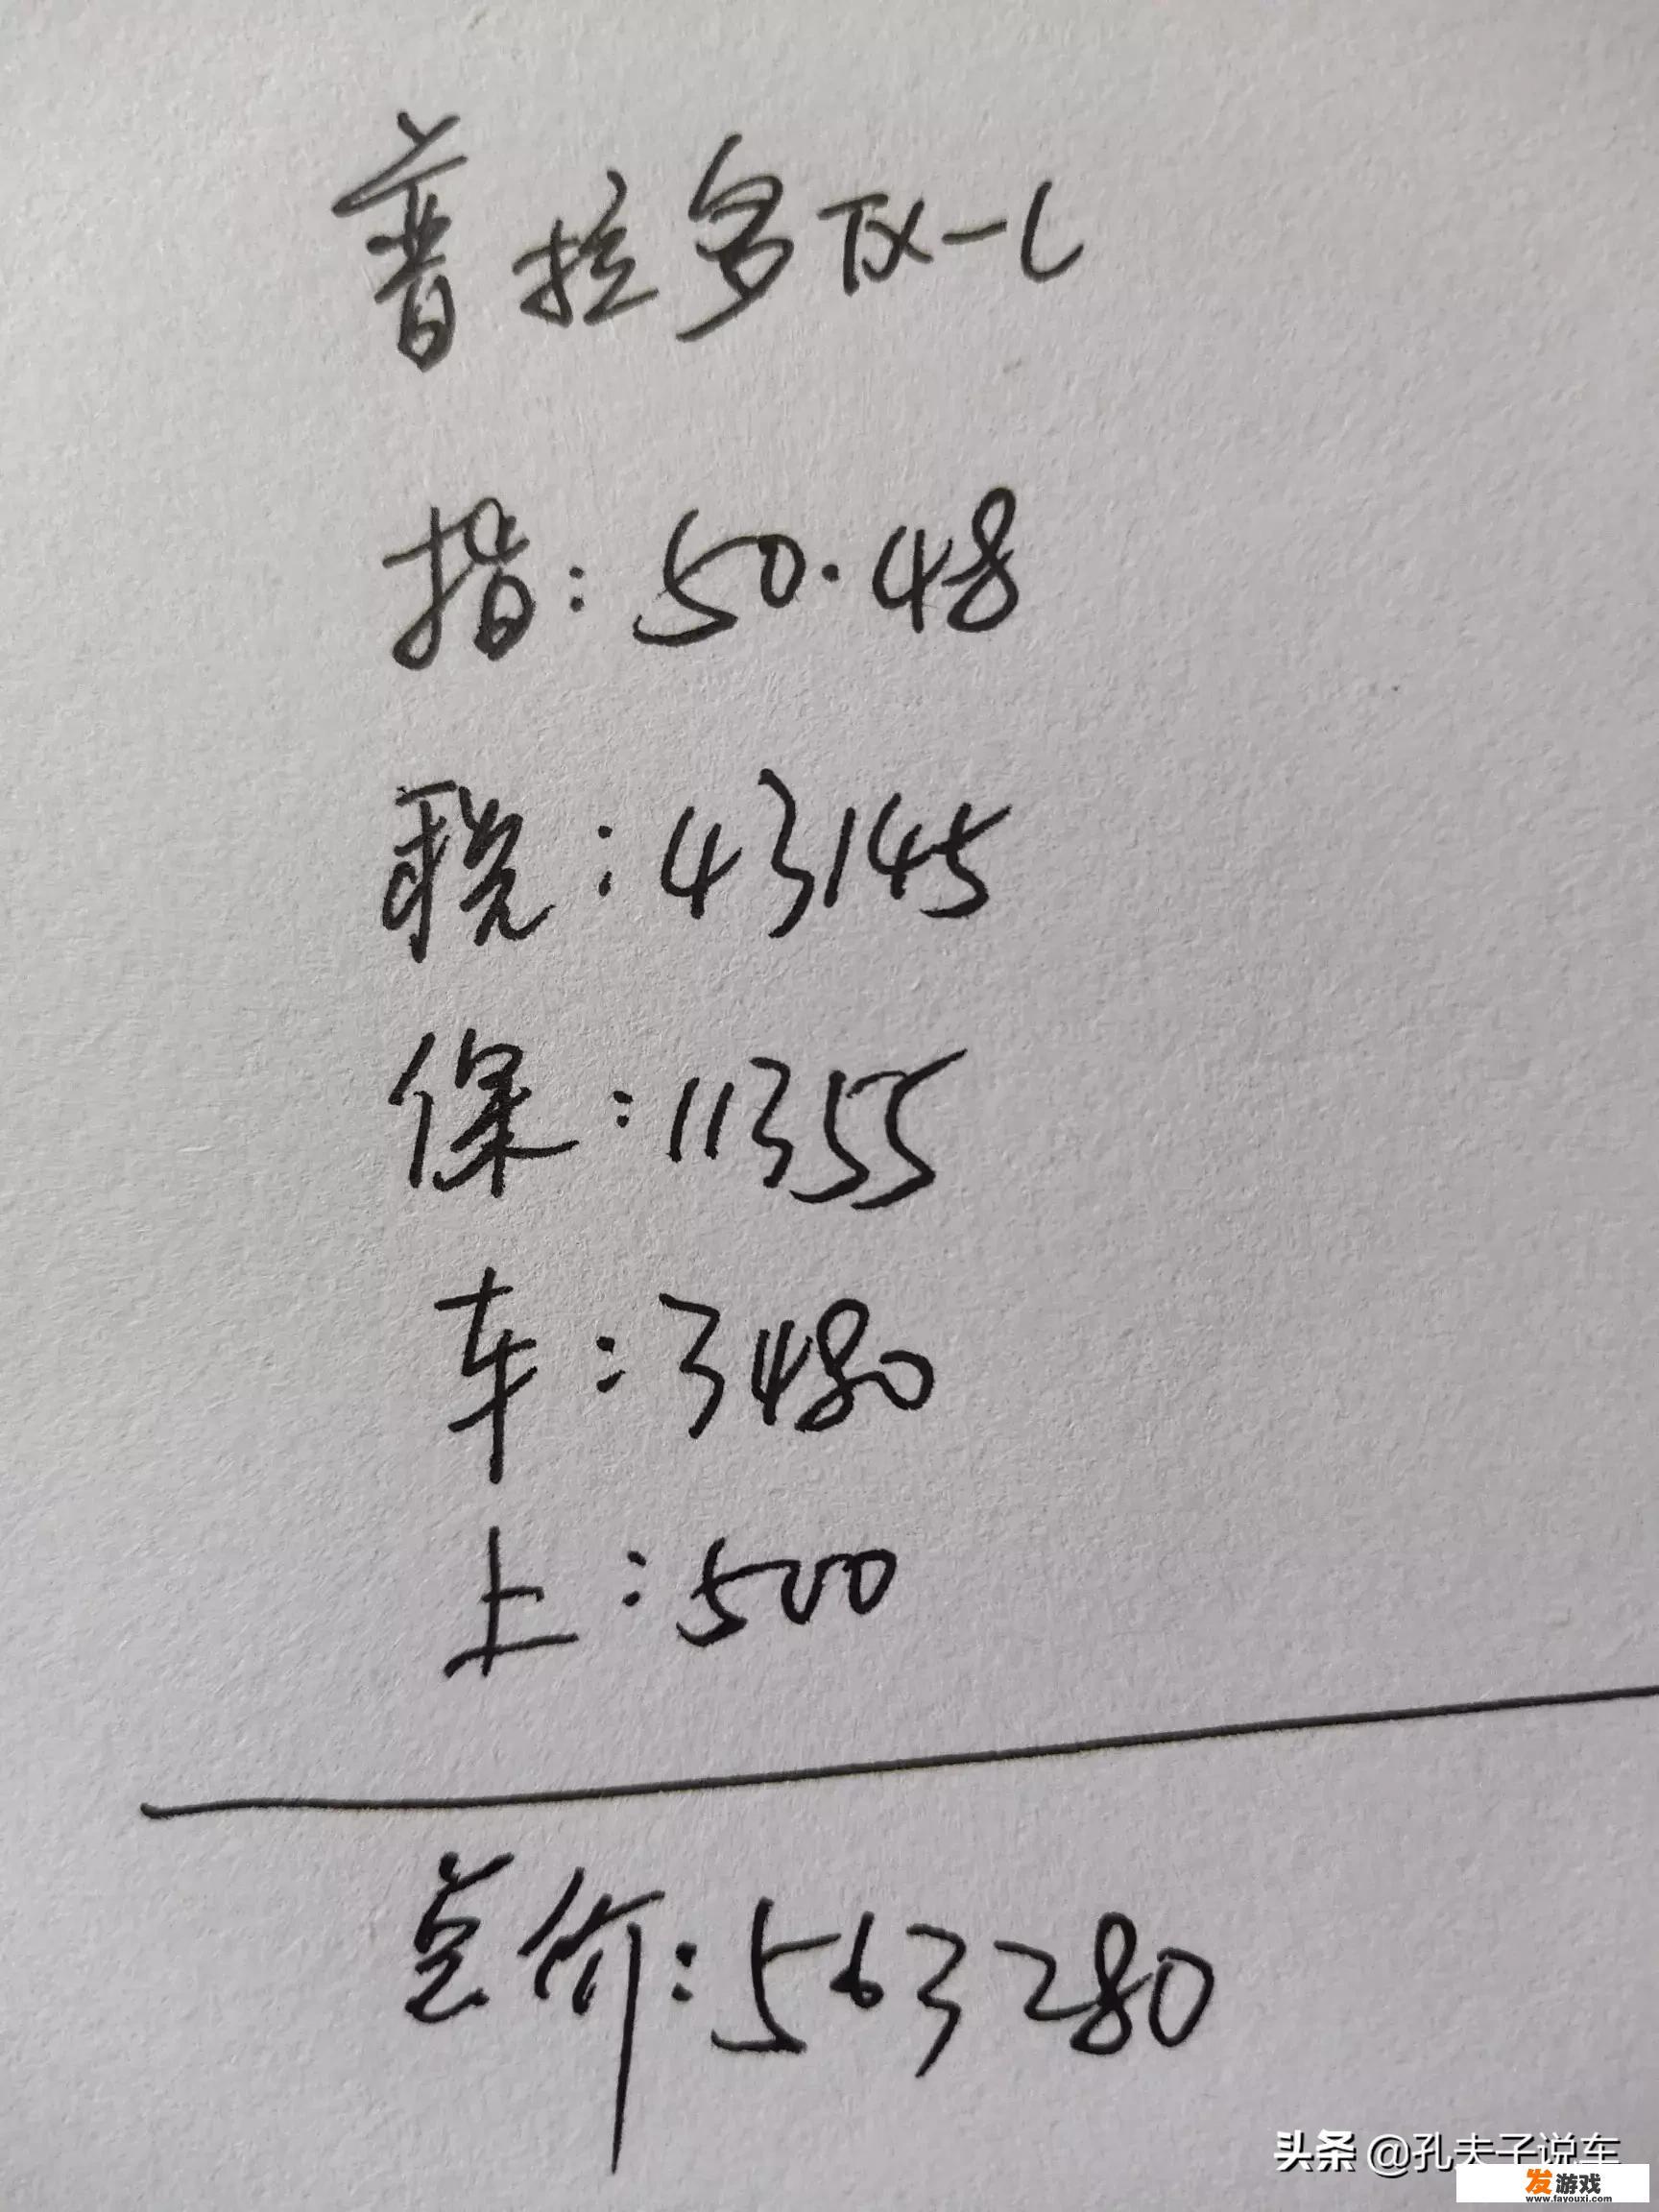 普拉多TX-L
指:50.48
税:43145
保:11355
车:3480
上:500
总价:563280
头条 @孔夫子说车
发游戏
www.fayouxi.com